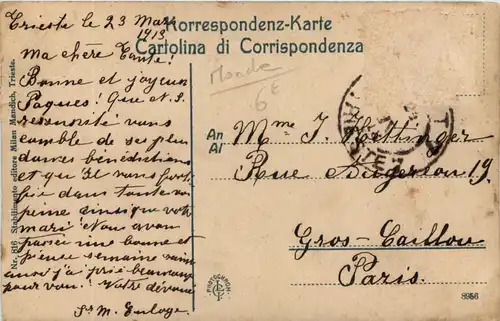 Trieste le 23 Mars
1913
Korrespondenz-Karte
Cartolina di Corrispondenza
Ma chère Tante!
Bonne et joyeuse
Pâques! Que
vous
comble de ses plus
bénédictions
et qu'Il vous forti-
fie dans toute
peine ainsi que votre
mari! Nous avons
passé une bonne et
pieuse semaine sainte
j'ai prié beaucoup
pour vous! Votre dévouée
Sr M. Euloge.
6€
An
Al
Mme J. Hottinger
Rue 19.
Gros-Caillou
Paris.
Nr. 816 Stabilimento editore Milan Mandich, Trieste.
8956